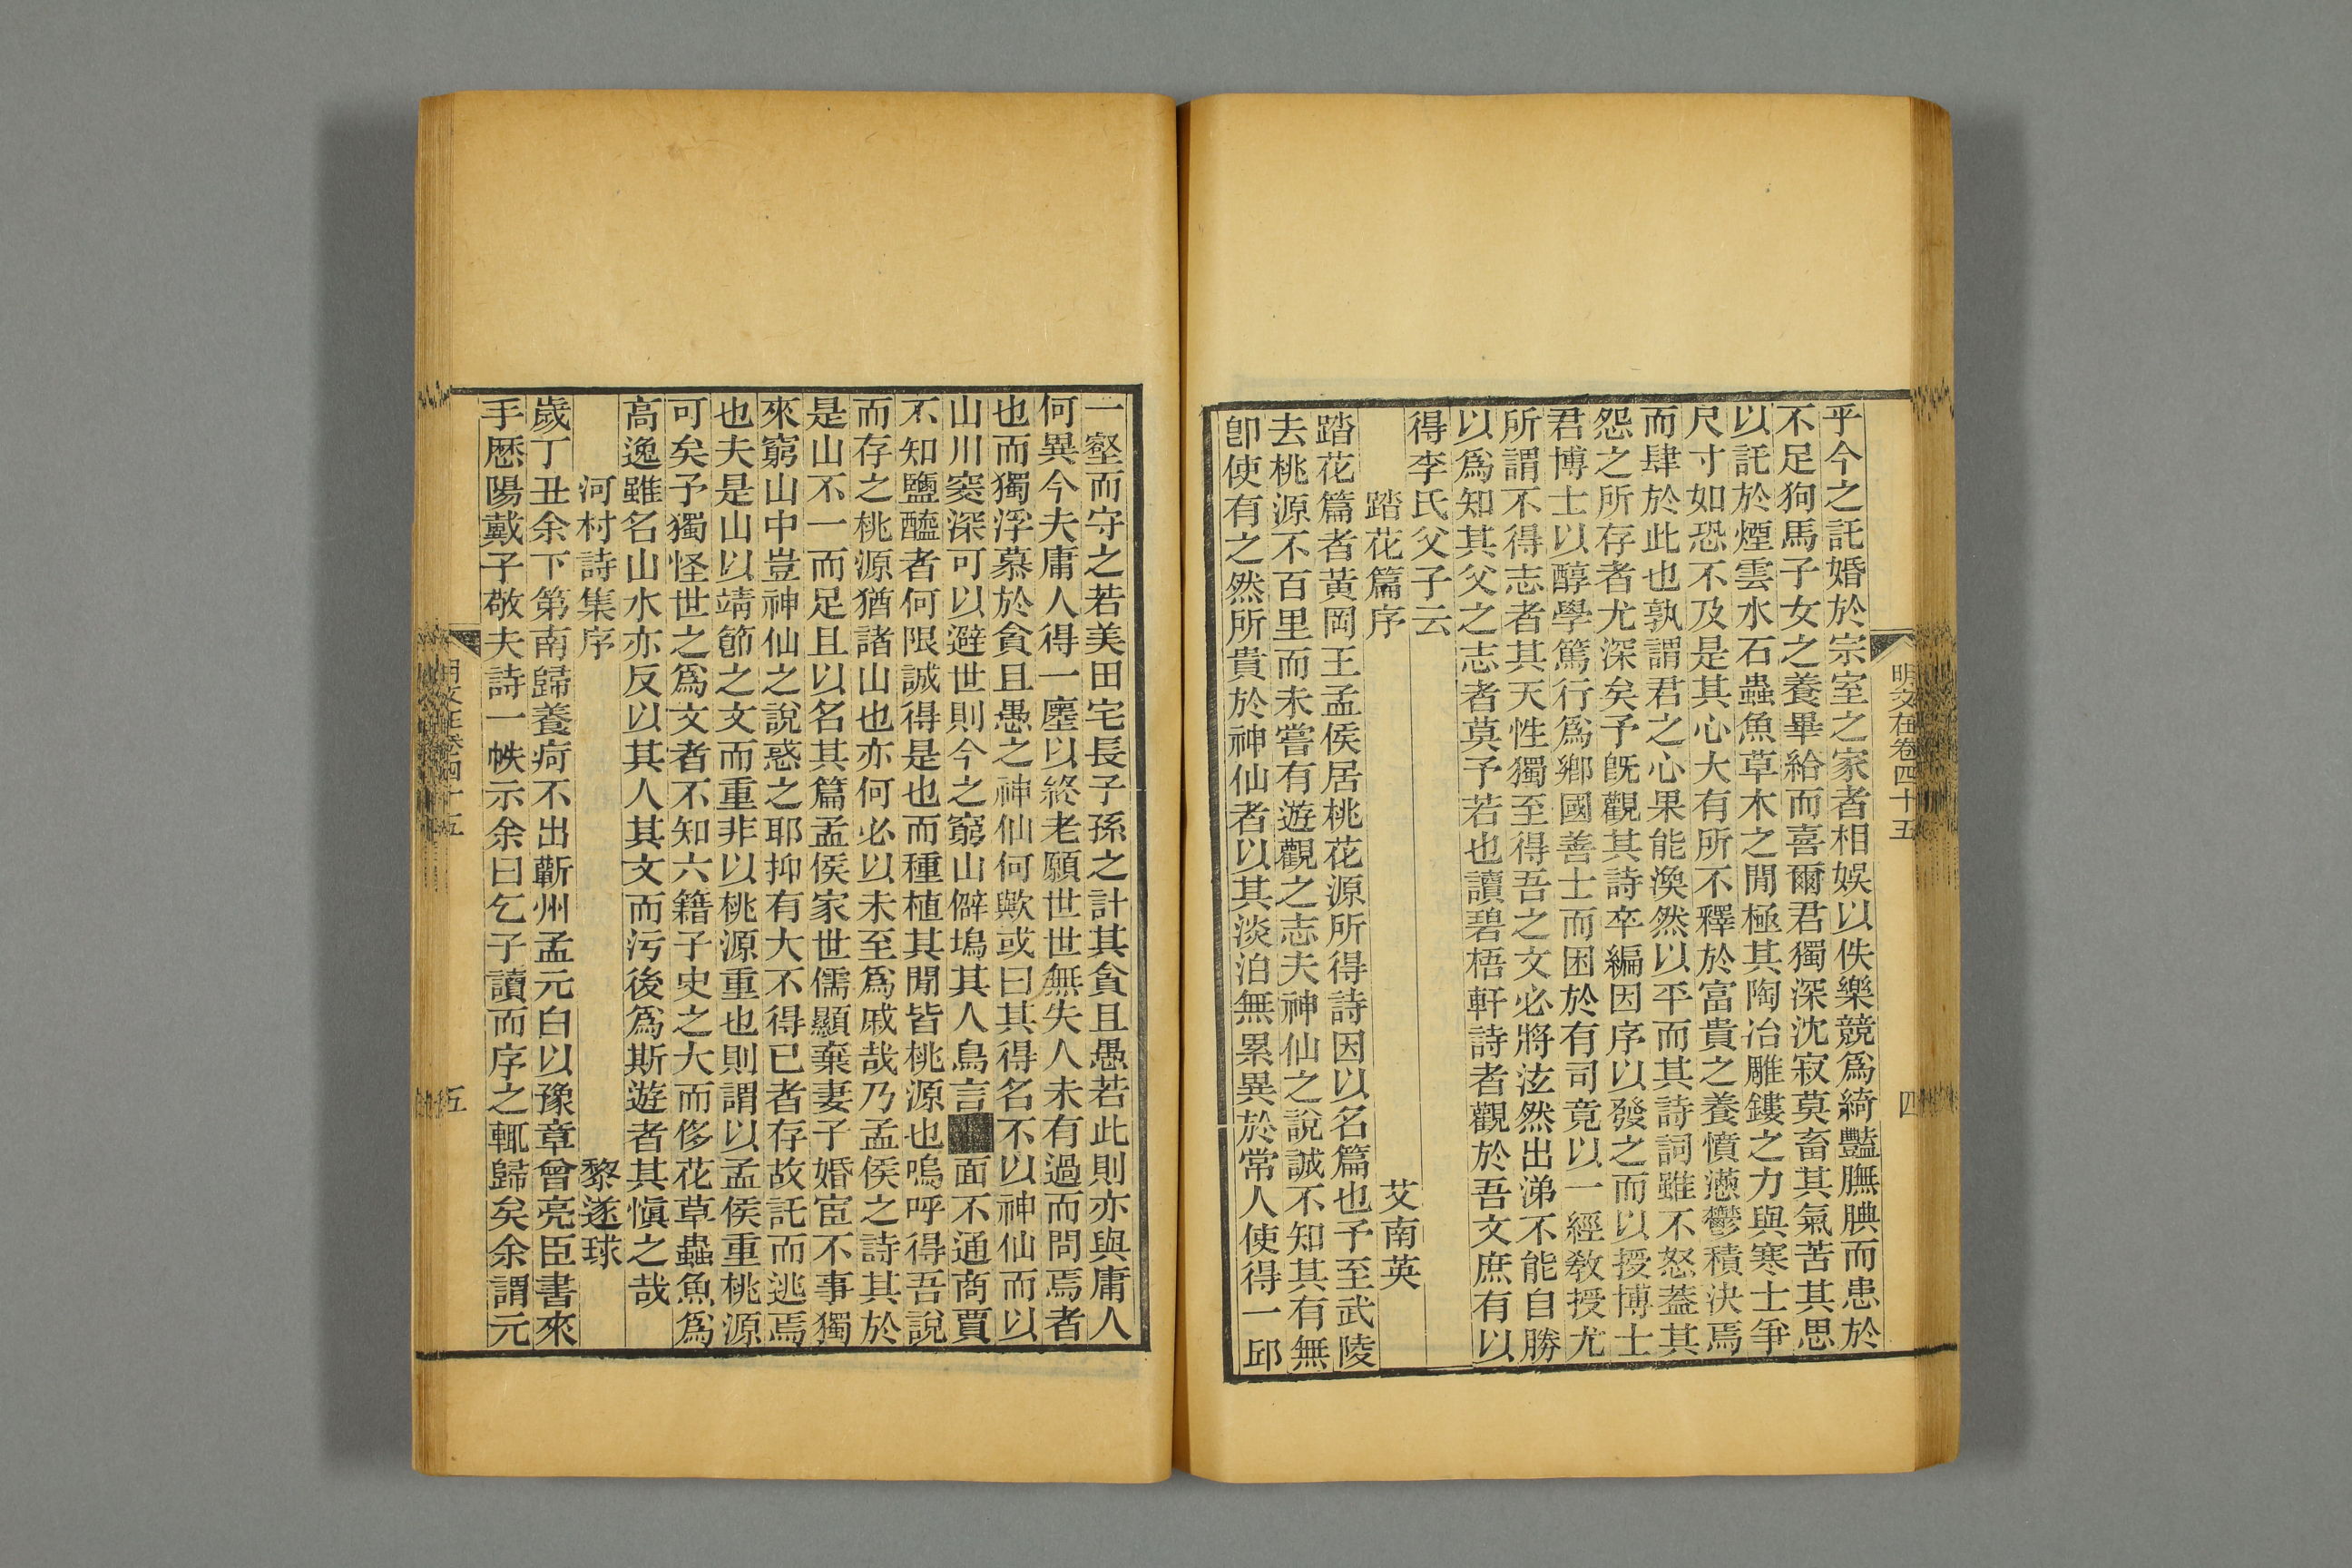 明文在卷四十五
四
乎今之託婚於宗室之家者相娛以佚樂競爲綺豔膴腆而患於
不足狗馬子女之養畢給而喜爾君獨深沈寂莫畜其氣苦其思
以託於煙雲水石蟲魚草木之閒極其陶冶雕鏤之力與寒士爭
尺寸如恐不及是其心大有所不釋於富貴之養憤懣鬱積決焉
而肆於此也孰謂君之心果能渙然以平而其詩詞雖不怒蓋其
怨之所存者尤深矣予旣觀其詩卒編因序以發之而以授博士
君博士以醇學篤行爲鄕國善士而困於有司竟以一經敎授尤
所謂不得志者其天性獨至得吾之文必將泫然出涕不能自勝
以爲知其父之志者莫予若也讀碧梧軒詩者觀於吾文庶有以
得李氏父子云
踏花篇序 艾南英
踏花篇者黃岡王孟侯居桃花源所得詩因以名篇也予至武陵
去桃源不百里而未嘗有遊觀之志夫神仙之說誠不知其有無
卽使有之然所貴於神仙者以其淡泊無累異於常人使得一邱
一壑而守之若美田宅長子孫之計其貪且愚若此則亦與庸人
何異今夫庸人得一廛以終老願世世無失人未有過而問焉者
也而獨浮慕於貪且愚之神仙何歟或曰其得名不以神仙而以
山川窔深可以避世則今之窮山僻塢其人鳥言面不通商賈
不知鹽醯者何限誠得是也而種植其閒皆桃源也嗚呼得吾說
而存之桃源猶諸山也亦何必以未至爲戚哉乃孟侯之詩其於
是山不一而足且以名其篇孟侯家世儒顯棄妻子婚宦不事獨
來窮山中豈神仙之說惑之耶抑有大不得已者存故託而逃焉
也夫是山以靖節之文而重非以桃源重也則謂以孟侯重桃源
可矣予獨怪世之爲文者不知六籍子史之大而侈花草蟲魚爲
高逸雖名山水亦反以其人其文而污後爲斯遊者其愼之哉
河村詩集序 黎遂球
歲丁丑余下第南歸養疴不出蘄州孟元白以豫章曾亮臣書來
手歷陽戴子敬夫詩一帙示余曰乞子讀而序之輒歸矣余謂元
明文在卷四十五
五